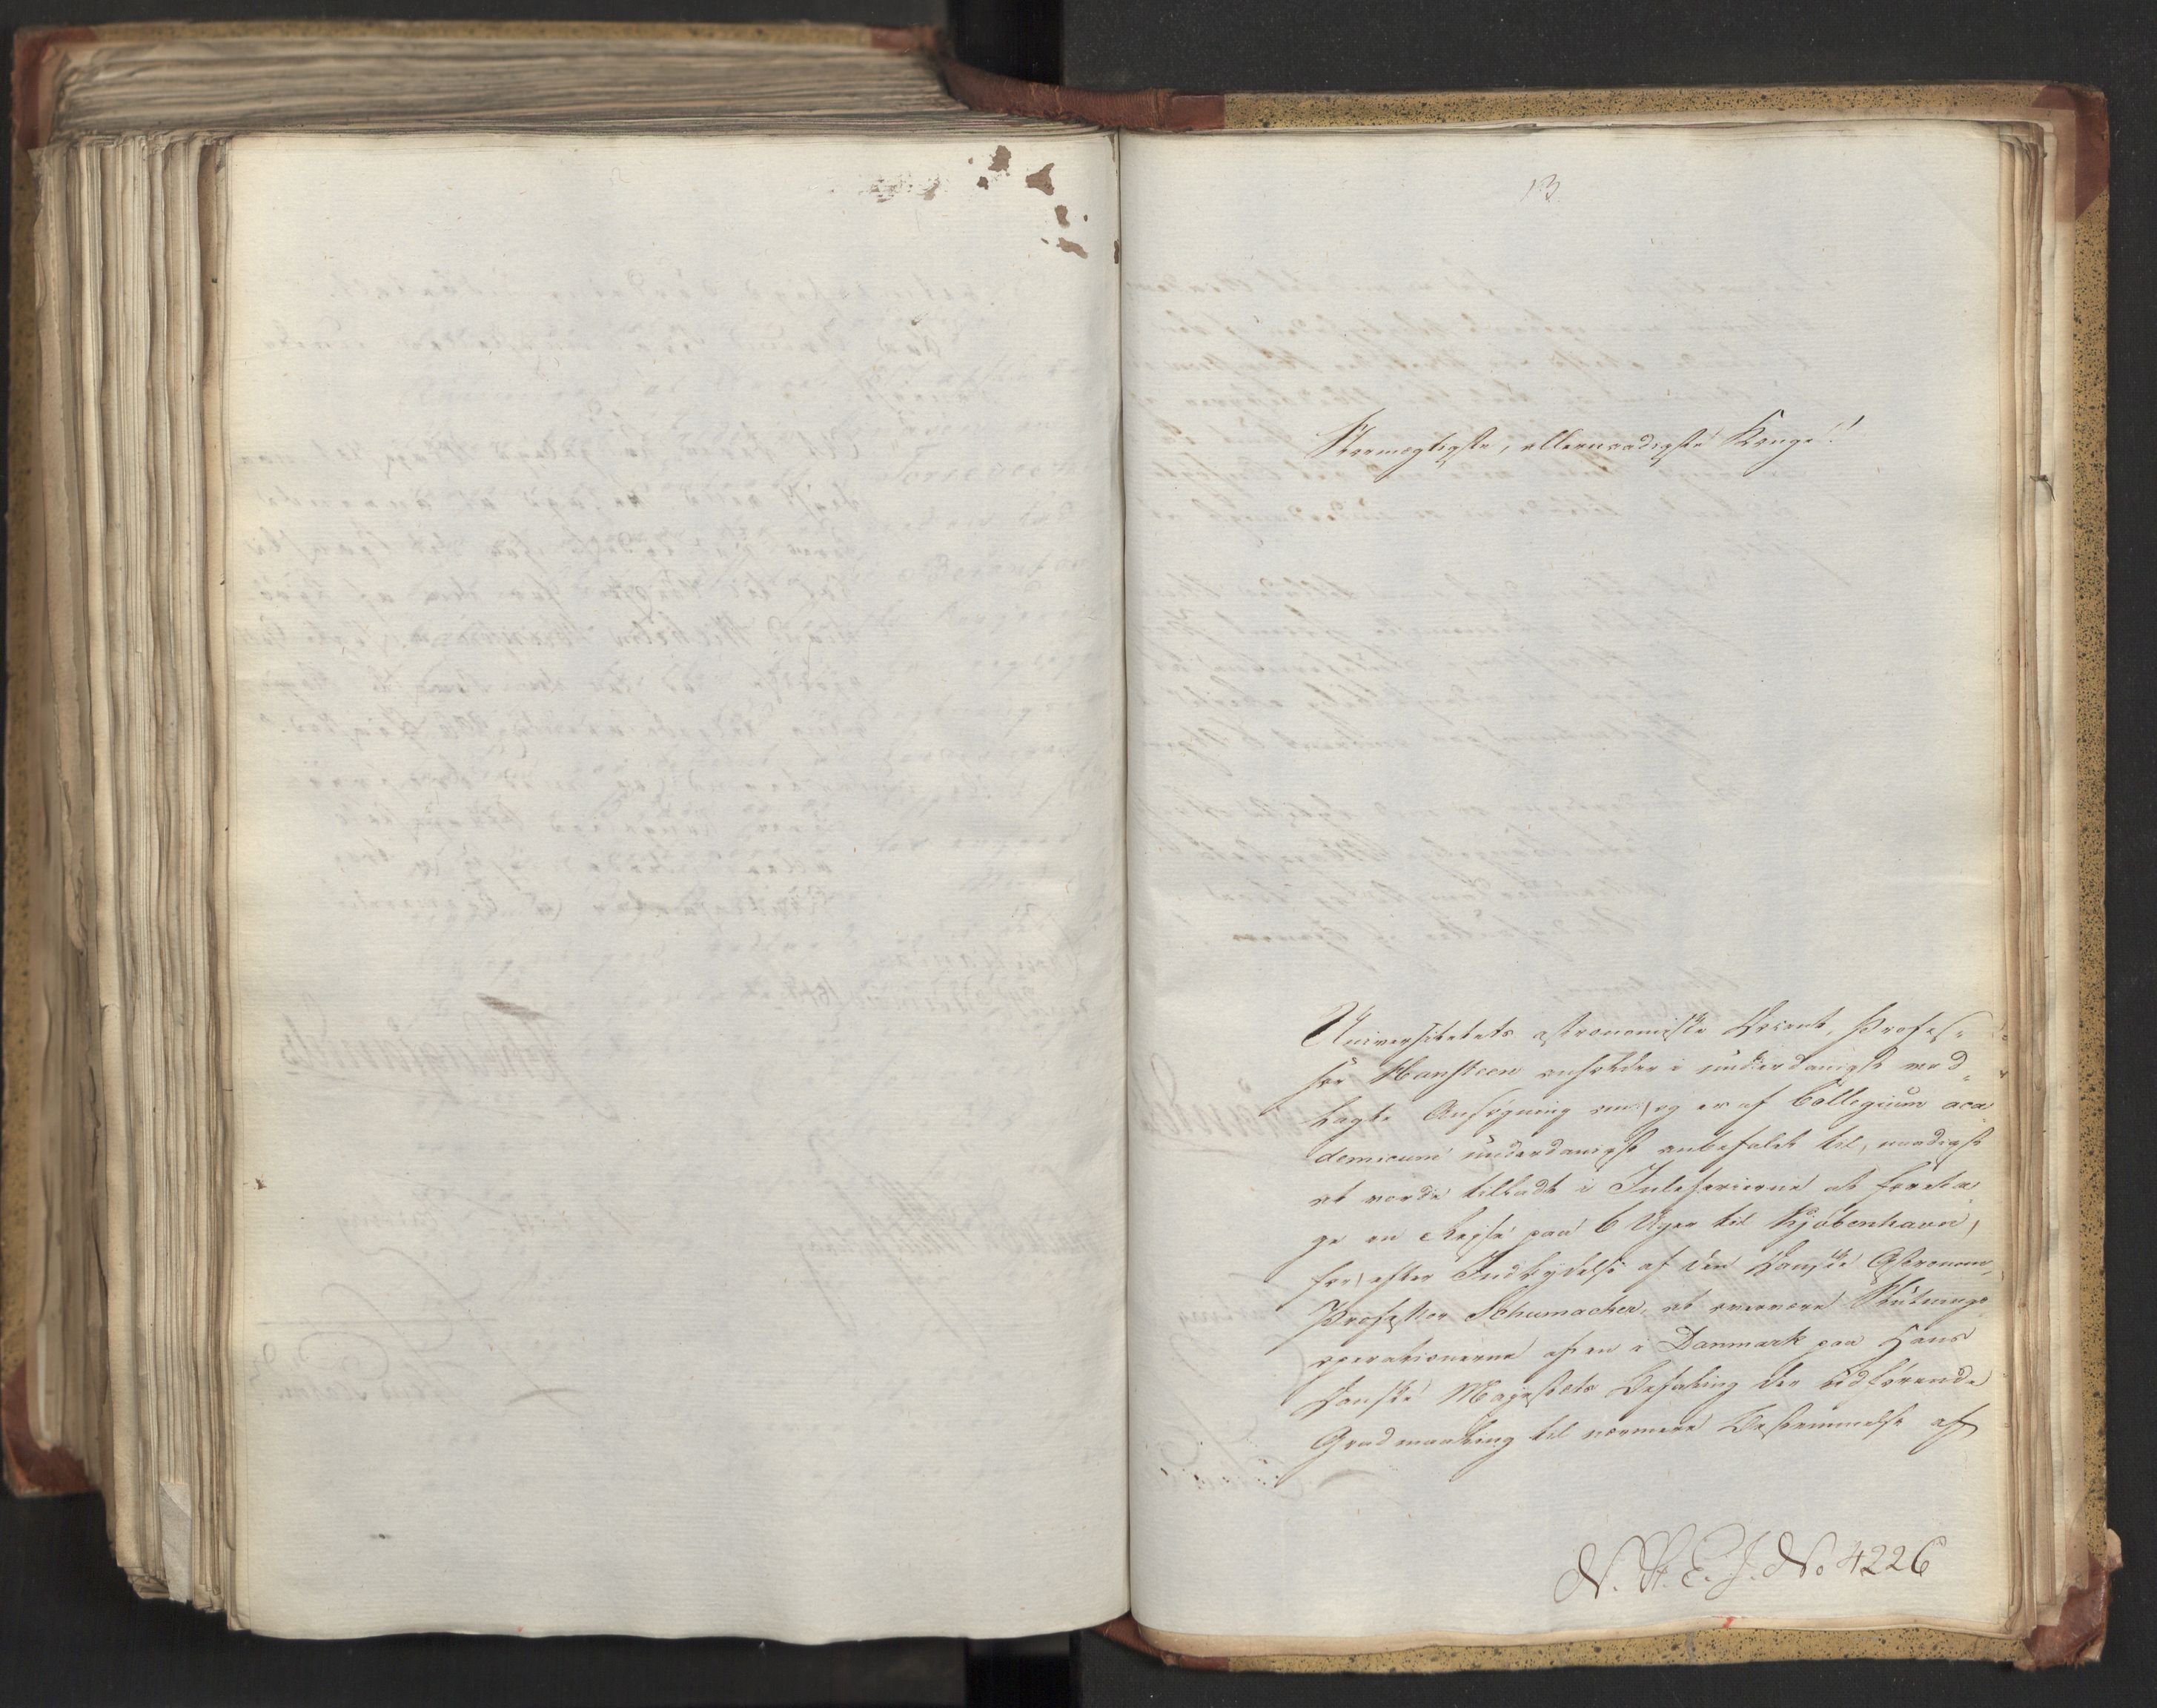 13
Stormægtigste, allernaadigste Konge!
Universitetets astronomiske Docent, Profes-
sor Hansteen anholder i underdanigst ved-
lagte Ansøgning om, og er af Collegium aca-
demicum underdanigst anbefalet til, naadigst
at vorde tilladt i Juleferierne at foreta-
ge en Rejse paa 6 Uger til Kjøbenhavn,
for, efter Indbydelse af den danske Astronom,
Professor Schumacher, at overvære Slutnings
operationerne af en i Danmark paa Hans
Danske Majestæts Befaling der udførende
Gradmaaling til nærmere Bestemmelse af
N. St. E. J. No 4226